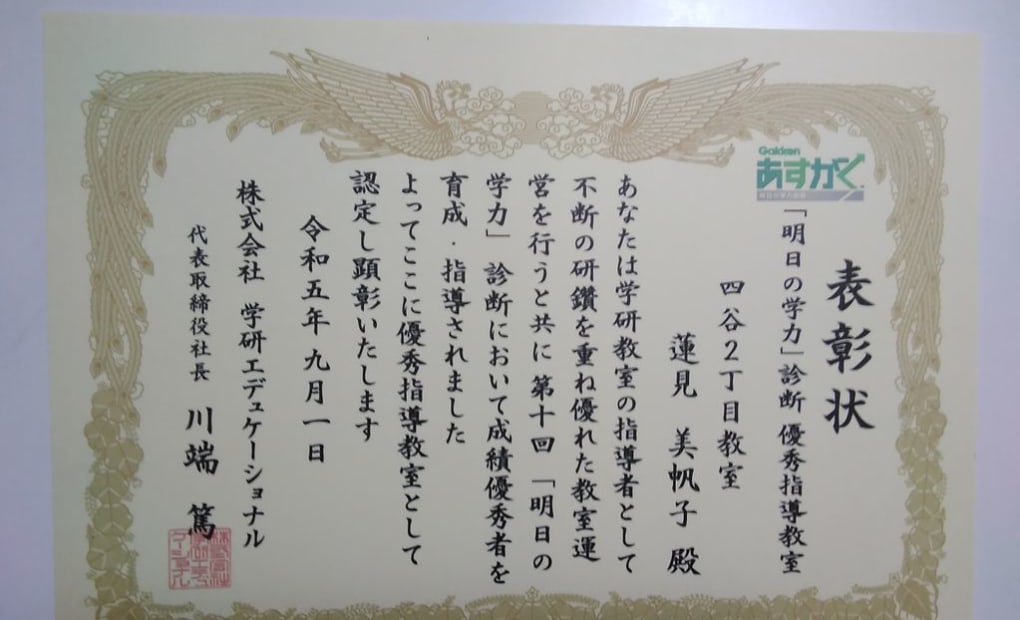 表彰状
Gakken
あすがく
「明日の学力」診断 優秀指導教室
四谷2丁目教室
蓮見 美帆子 殿
あなたは学研教室の指導者として
不断の研鑽を重ね優れた教室運
営を行うと共に 第十回 「明日の
学力」 診断において成績優秀者を
育成・指導されました
よってここに優秀指導教室として
認定し顕彰いたします
令和五年 九月一日
株式会社 学研エデュケーショナル
代表取締役社長 川端 篤